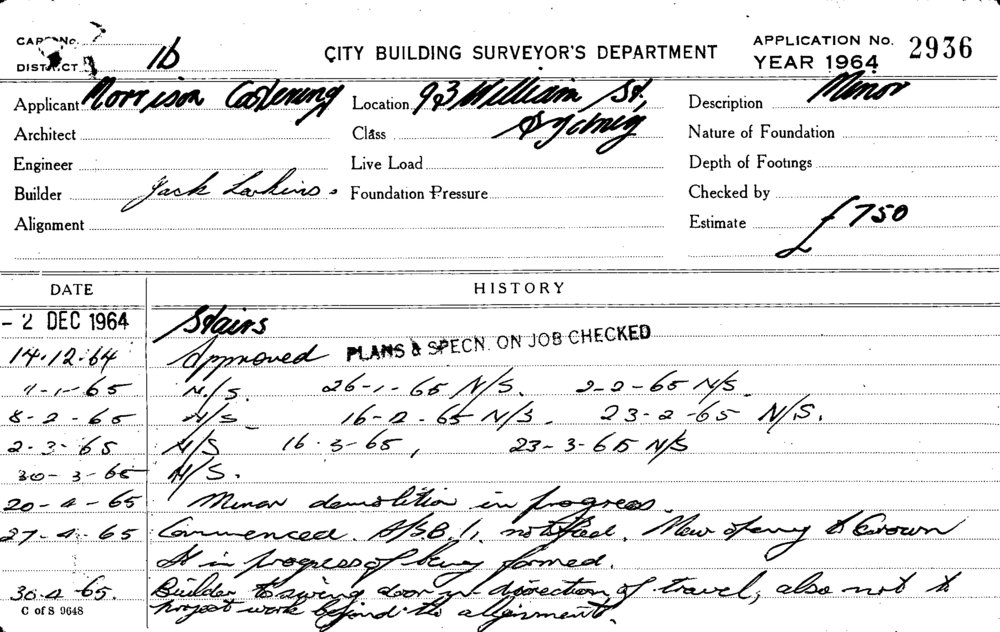 CARD No.
DISTRICT 1b
CITY BUILDING SURVEYOR'S DEPARTMENT
APPLICATION No. 2936
YEAR 1964
Applicant Morrison
Location 93 William St,
Sydney
Description Minor
Architect
Class
Nature of Foundation
Engineer
Live Load
Depth of Footings
Builder Jack Larkins.
Foundation Pressure
Checked by
Alignment
Estimate £750
DATE HISTORY
- 2 DEC 1964 Stairs
14.12.64 Approved PLANS & SPECN. ON JOB CHECKED
-1-65 N/S. 26-1-65 N/S. 2-2-65 N/S
8-2-65 N/S 16-2-65 N/S 23-2-65 N/S.
2-3-65 N/S 16.3-65, 23-3-65 N/S
30-3-65 N/S.
20-4-65 Minor demolition in progress.
27-4-65 Commenced. notified. New opening to Crown
St in progress of being formed.
30-4-65. Builder to swing door in direction of travel, also not to
project work beyond the alignment.
C of S 9648